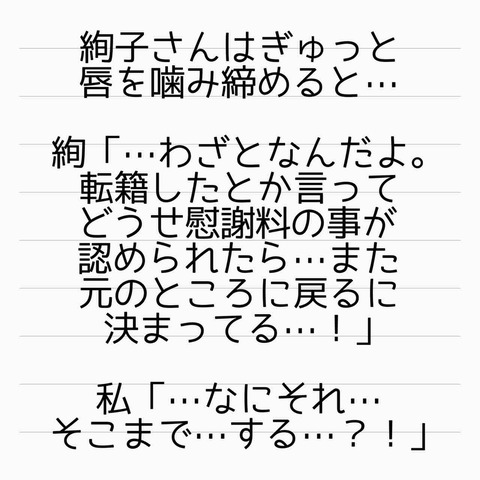 絢子さんはぎゅっと
唇を噛み締めると…
絢「…わざとなんだよ。
転籍したとか言って
どうせ慰謝料の事が
認められたら…また
元のところに戻るに
決まってる…！」
私「…なにそれ…
そこまで…する…？！」